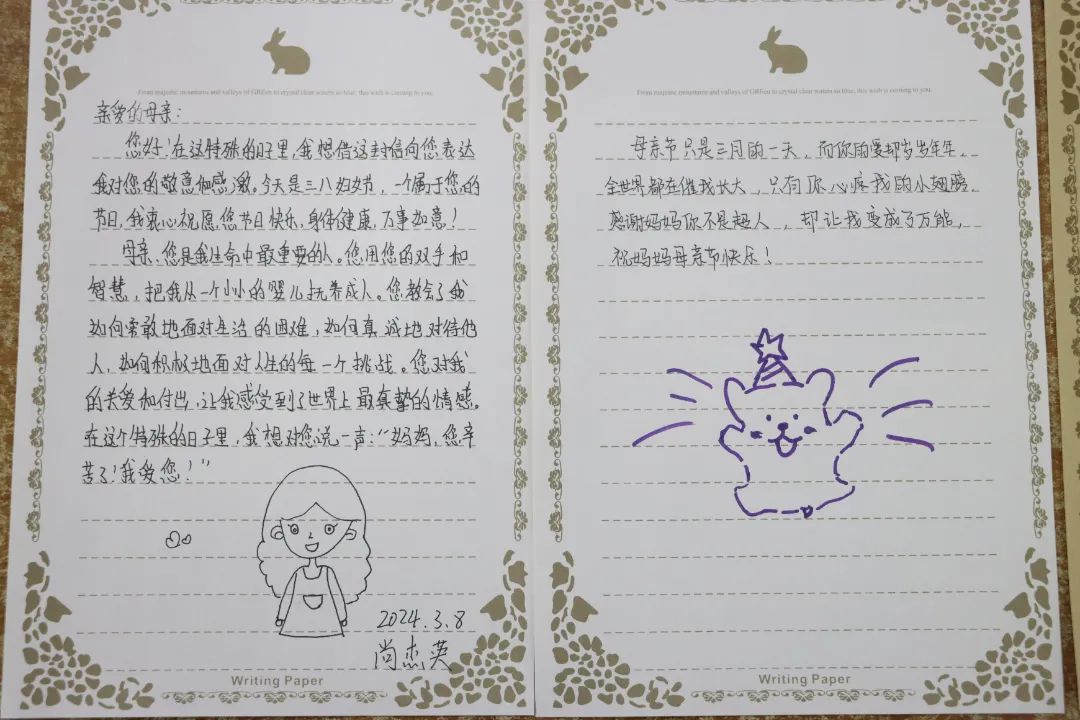 From majestic mountains and valleys of GREen to crystal clear waters so blue, this wish is coming to you.
亲爱的母亲：
您好！在这特殊的日子里，我想借这封信向您表达
我对您的敬意和感激。今天是三八妇女节，一个属于您的
节日，我衷心祝愿您节日快乐，身体健康，万事如意！
母亲，您是我生命中最重要的人。您用您的双手和
智慧，把我从一个小小的婴儿抚养成人。您教会了我
如何勇敢地面对生活的困难，如何真诚地对待他
人，如何积极地面对人生的每一个挑战。您对我
的关爱和付出，让我感受到了世界上最真挚的情感。
在这个特殊的日子里，我想对您说一声：“妈妈，您辛
苦了！我爱您！”
2024.3.8
尚杰英
Writing Paper
From majestic mountains and valleys of GREen to crystal clear waters so blue, this wish is coming to you.
母亲节只是三月的一天，而你的爱却岁岁年年，
全世界都在催我长大，只有你心疼我的小翅膀
感谢妈妈你不是超人，却让我变成了万能，
祝妈妈母亲节快乐！
Writing Paper